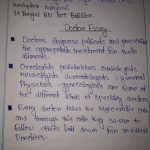 Doctor Essay
Doctors diagnose patients and prescribe
the appropriate treatment for their
ailments.
Oncologists, pediatricians, cardiologists,
neurologists dermatologists, general
Physicians, gynecologists are some of
the different kinds of speciality doctors
Every doctor takes the Hippocratic oath
and through this oath they swear to
follow ethics laid down for medical
Practices